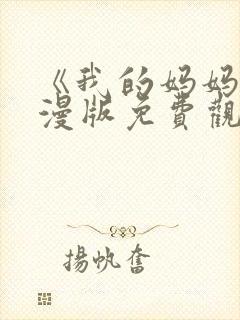 《我的妈妈
漫版免費觀
揚帆奮